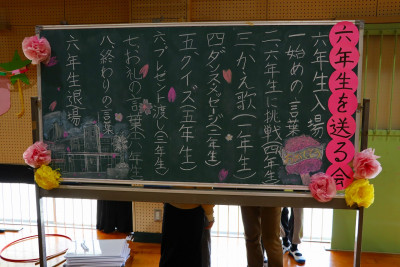 六年生を送る会
六年生入場
一始めの言葉
二六年生に挑戦(四年生)
三かえ歌(一年生)
四ダンスメッセージ(二年生)
五クイズ(五年生)
六プレゼント渡し(三年生)
七お礼の言葉(六年生)
八終わりの言葉
六年生退場